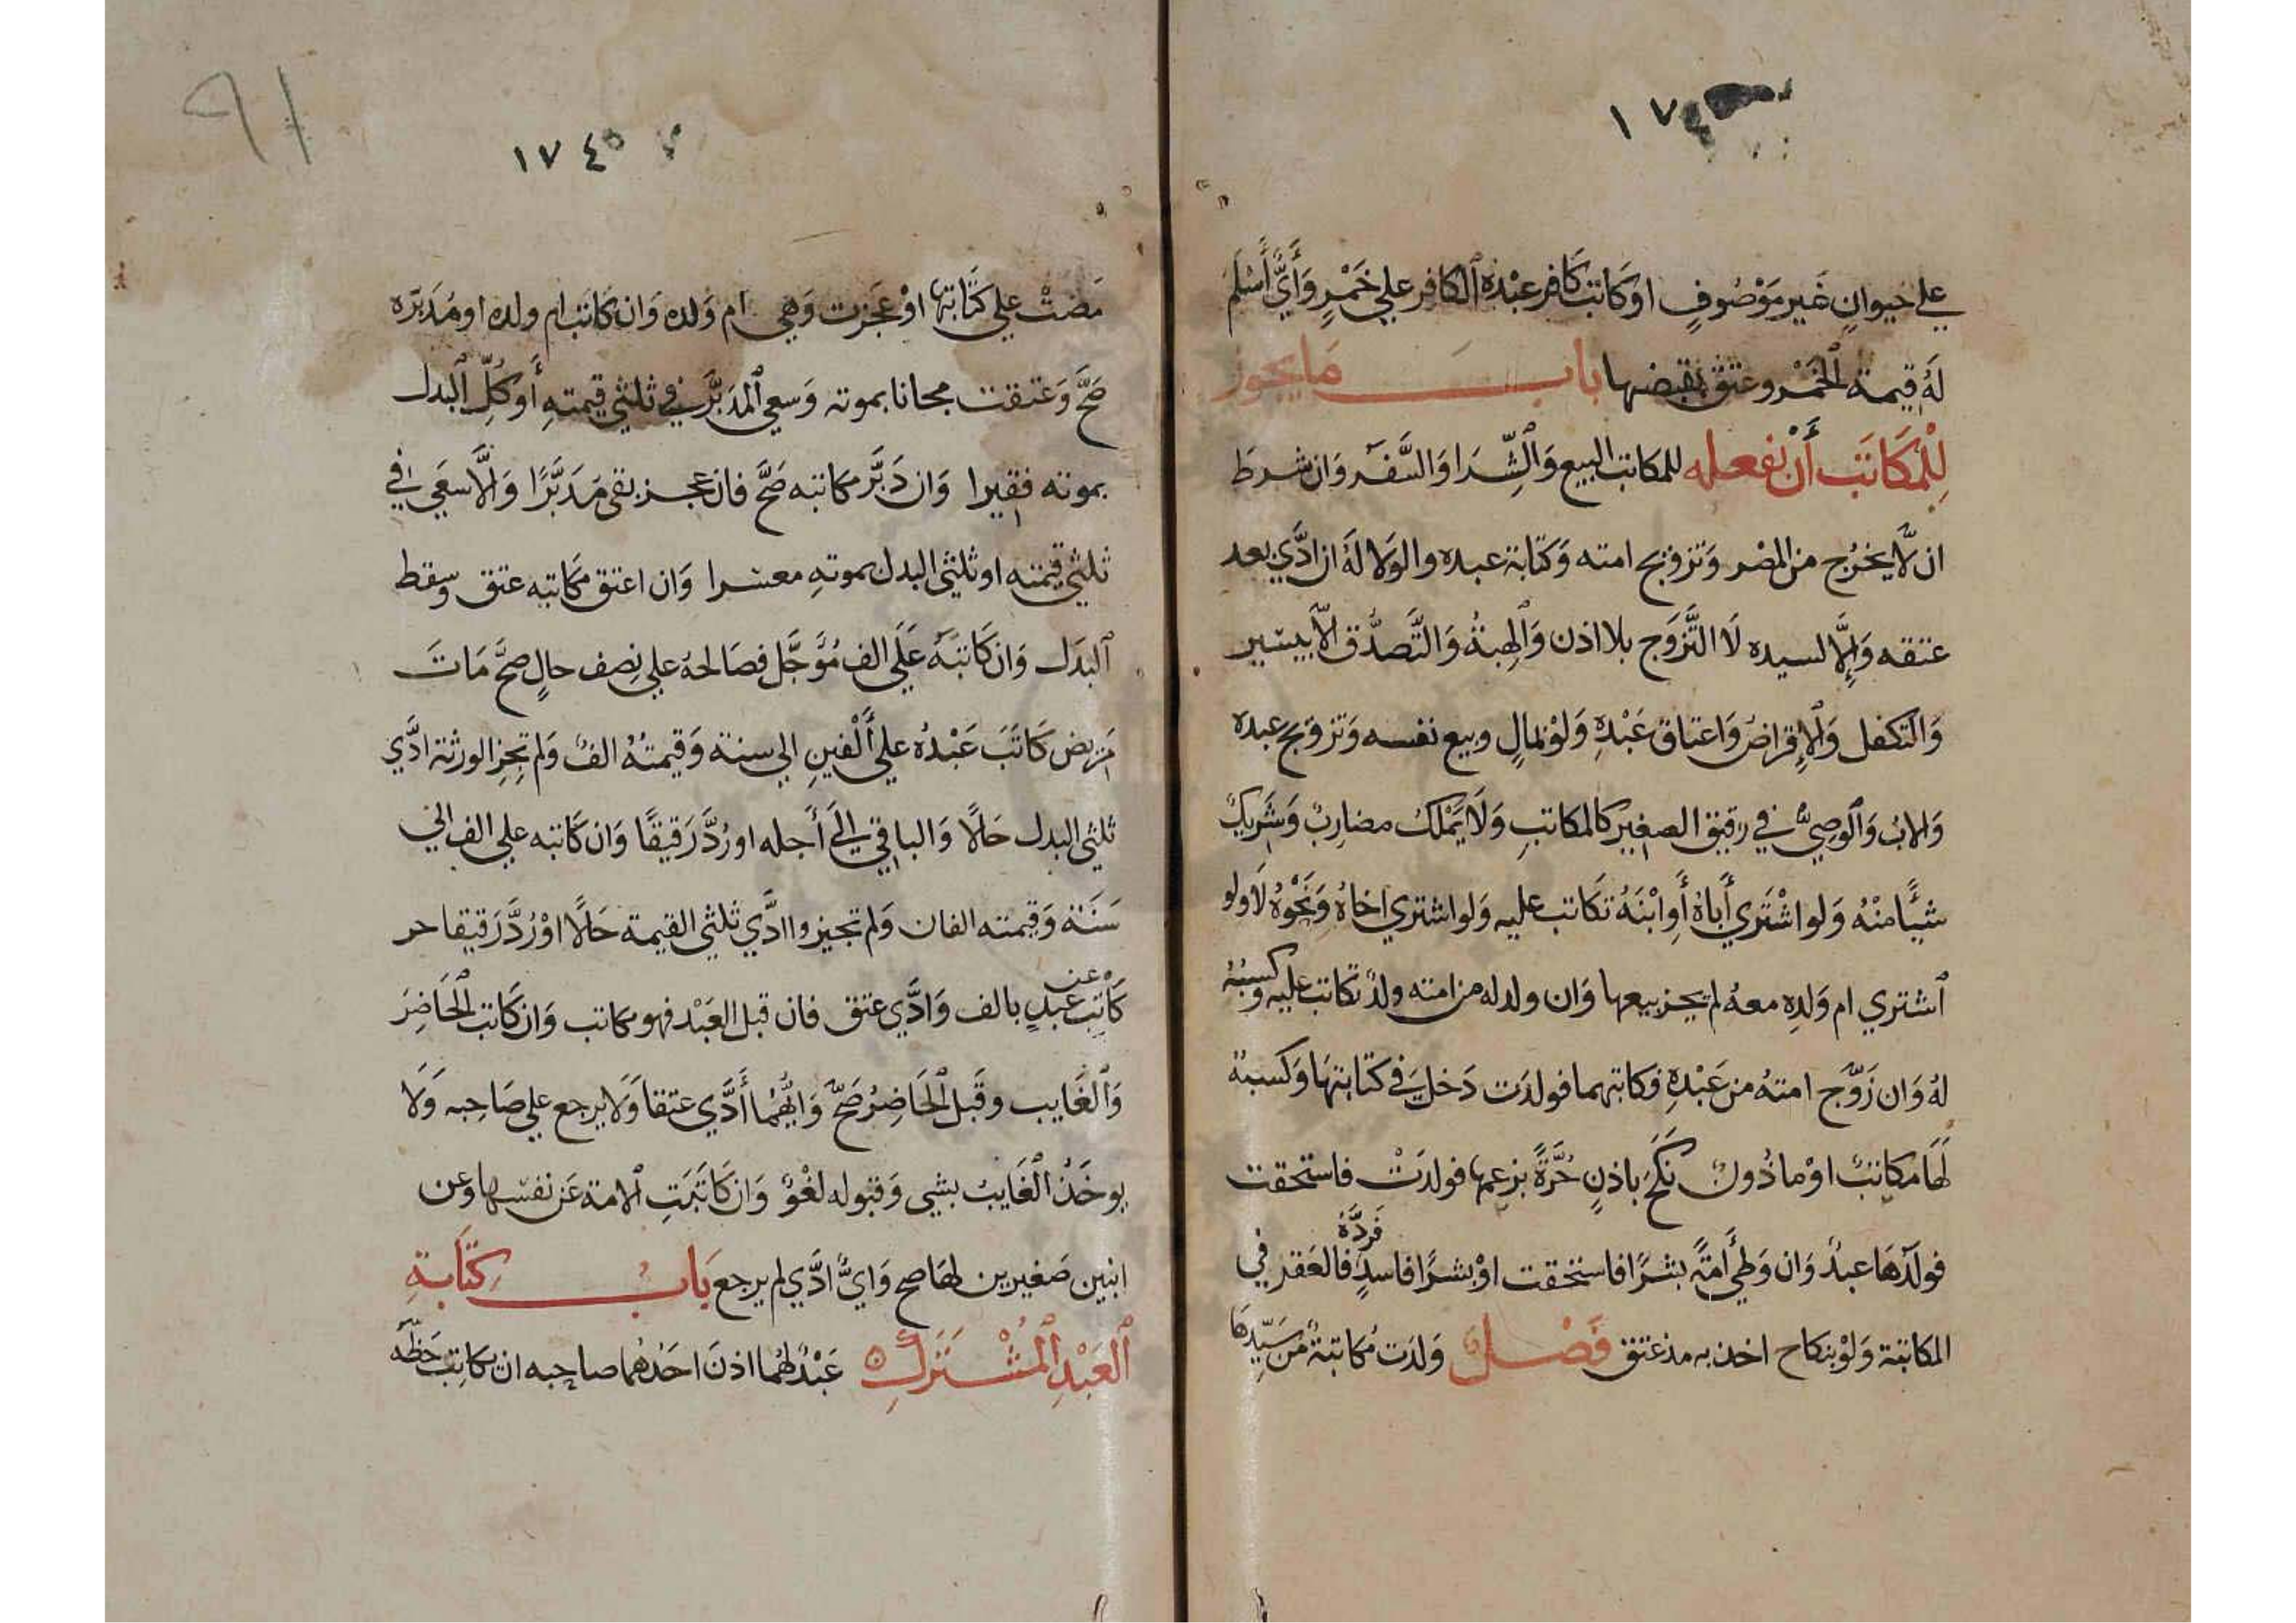 ١٧٤
علي حيوانٍ غَير مَوْصُوفٍ او كَاتب كَافر عبْده ٱلكافر علي خَمْرٍ وَأَيٌّ أَسْلَمَ
لَهُ قيمة ٱلخَمْر وعتق بقبضها باب مَا يجوز
لِلْمكَاتَب أَنْ يفعله للمكاتب البيع وَٱلشِّرَا وَالسَّفَر وَان شرطَ
ان لَّا يخرُج من المصْر وَتزويج امته وَكتَابة عبده والوَلا لَهُ ان ادَّي بعد
عتقه وَإِلَّا لسيده لَا التَّزوَج بلا اذن وَٱلهِبةُ وَالتَّصدُّق الَّا بيَسير
وَالتكفل وَٱلإِقراضُ وَاعتاق عَبْدِهِ وَلوْ بمالٍ وبيع نفسه وَتزويج عبده
وَالابُ وَٱلوصِيُّ في رقيق الصغير كالمكاتبِ وَلَا يَمْلكُ مضارِبٌ وَشَرِيكٌ
شيًا منْهُ وَلو اشْتَري أَباهُ أَوِ ابْنَهُ تكَاتب عليه وَلو اشتري اخاهُ وَنَحْوَهُ لَا ولو
ٱشتري ام وَلدِه معهُ لم يجز بيعها وَان ولد له من امته ولدٌ تكاتب عليه وكسْبُهُ
لهُ وَان زَوَّج امتهُ من عَبْدِهِ فكاتبهما فولدَت دَخلَ في كتابتهَا وَكسبهُ
لَهَا مكاتبٌ اوْ ماذُونٌ نكَحَ باذنٍ حُرَّةً بزعمها فولدَتْ فاستحقت
فولدُهَا عبدٌ وَان وَطِيَ أَمَةً بشرًا فاستحقت اوْ بشرًا فاسدٍ فَردَّهُ فالعَقر في
المكاتبة وَلوْ بنكاح اخذ به مذ عتق فَصْل وَلدَت مُكاتبةٌ من سَيِّدِهَا
٩١
١٧٤٥
مَضتْ علي كتَابتها اوْ عَجَزت وَهي ام وَلده وَان كاتَب ام ولده او مُدَبّره
صَحَّ وَعَتقت مجانا بموته وَسعي ٱلمدَبَّر في ثلثي قيمتهِ أَو كُلِّ البدل
بموته فقيرا وَان دَبَّر مكاتبه صَحَّ فان عجز بقي مُدَبَّرًا وَالَّا سعَي في
ثلثي قيمته او ثلثي البدل بموتهِ معسرا وَان اعتق مكاتبه عتق وسقط
ٱلبَدَل وَان كَاتبَهُ عَلَي الف مُؤَجَّل فصَالحهُ علي نِصف حالٍ صَحَّ مَاتَ
مَريض كَاتَبَ عَبْدُه علي أَلْفينِ الي سنة وَقيمتُهُ الفٌ وَلم تُجِزِ الورثة ادَّي
ثلثي البدل حَالًا وَالباقي إِلَي أَجله او رُدَّ رَقيقًا وَان كَاتبه علي الف الي
سَنَة وَقيمته الفان وَلم تجيزوا ادَّي ثلثي القيمة حَالًا اوْ رُدَّ رَقيقا حر
كَاتب عن عبدٍ بالف وَادَّي عتق فان قبل العَبْد فهو مكاتب وَان كَاتب ٱلحَاضِرَ
وَٱلغَايب وقَبل ٱلحَاضِرُ صَحَّ وَايُّهُمَا أَدَّي عتقا وَلَا يرجع علي صَاحِبه وَلَا
يوخَذُ ٱلغَايبُ بشي وَقبوله لغْوٌ وَان كَاتَبَتِ ٱلامة عَن نفسها وعن
ابنين صَغيرين لهَا صح وَايٌّ ادَّي لم يرجع بَابُ كتَابةِ
ٱلعَبْدِ ٱلمُشْتَرَكِ عَبْدٌ لهُمَا اذنَ احَدُهُمَا صاحبه ان يكاتِب حَظَّه